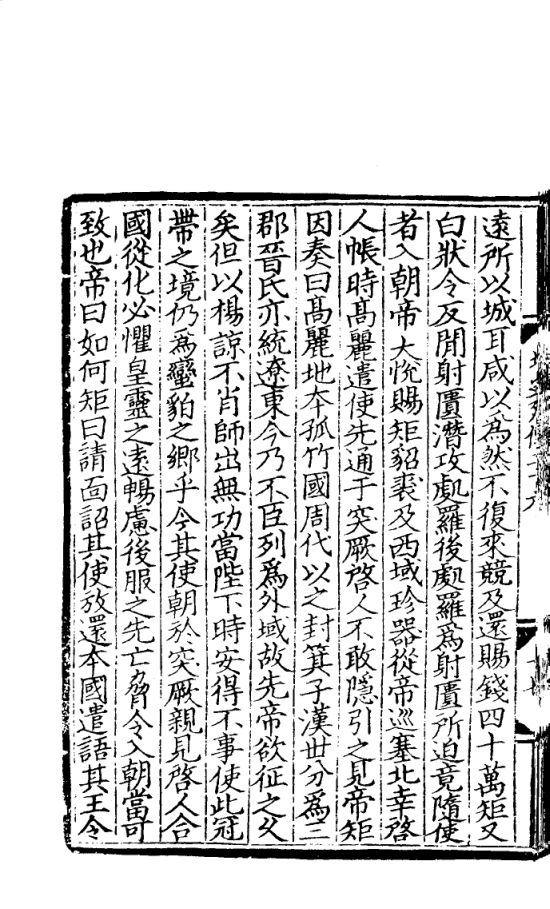 遠所以城耳咸以爲然不復來競及還賜錢四十萬矩又
白狀令反閒射匱潛攻處羅後處羅爲射匱所迫竟隨使
者入朝帝大悅賜矩貂裘及西域珍器從帝巡塞北幸啓
人帳時髙麗遣使先通于突厥啓人不敢隱引之見帝矩
因奏曰髙麗地本孤竹國周代以之封箕子漢世分爲三
郡晉氏亦統遼東今乃不臣列爲外域故先帝欲征之久
矣但以楊諒不肖師出無功當陛下時安得不事使此冠
帶之境仍爲蠻豹之鄉乎今其使朝於突厥親見啓人合
國從化必懼皇靈之遠暢慮後服之先亡脅令入朝當可
致也帝曰如何矩曰請面詔其使放還本國遣語其王令